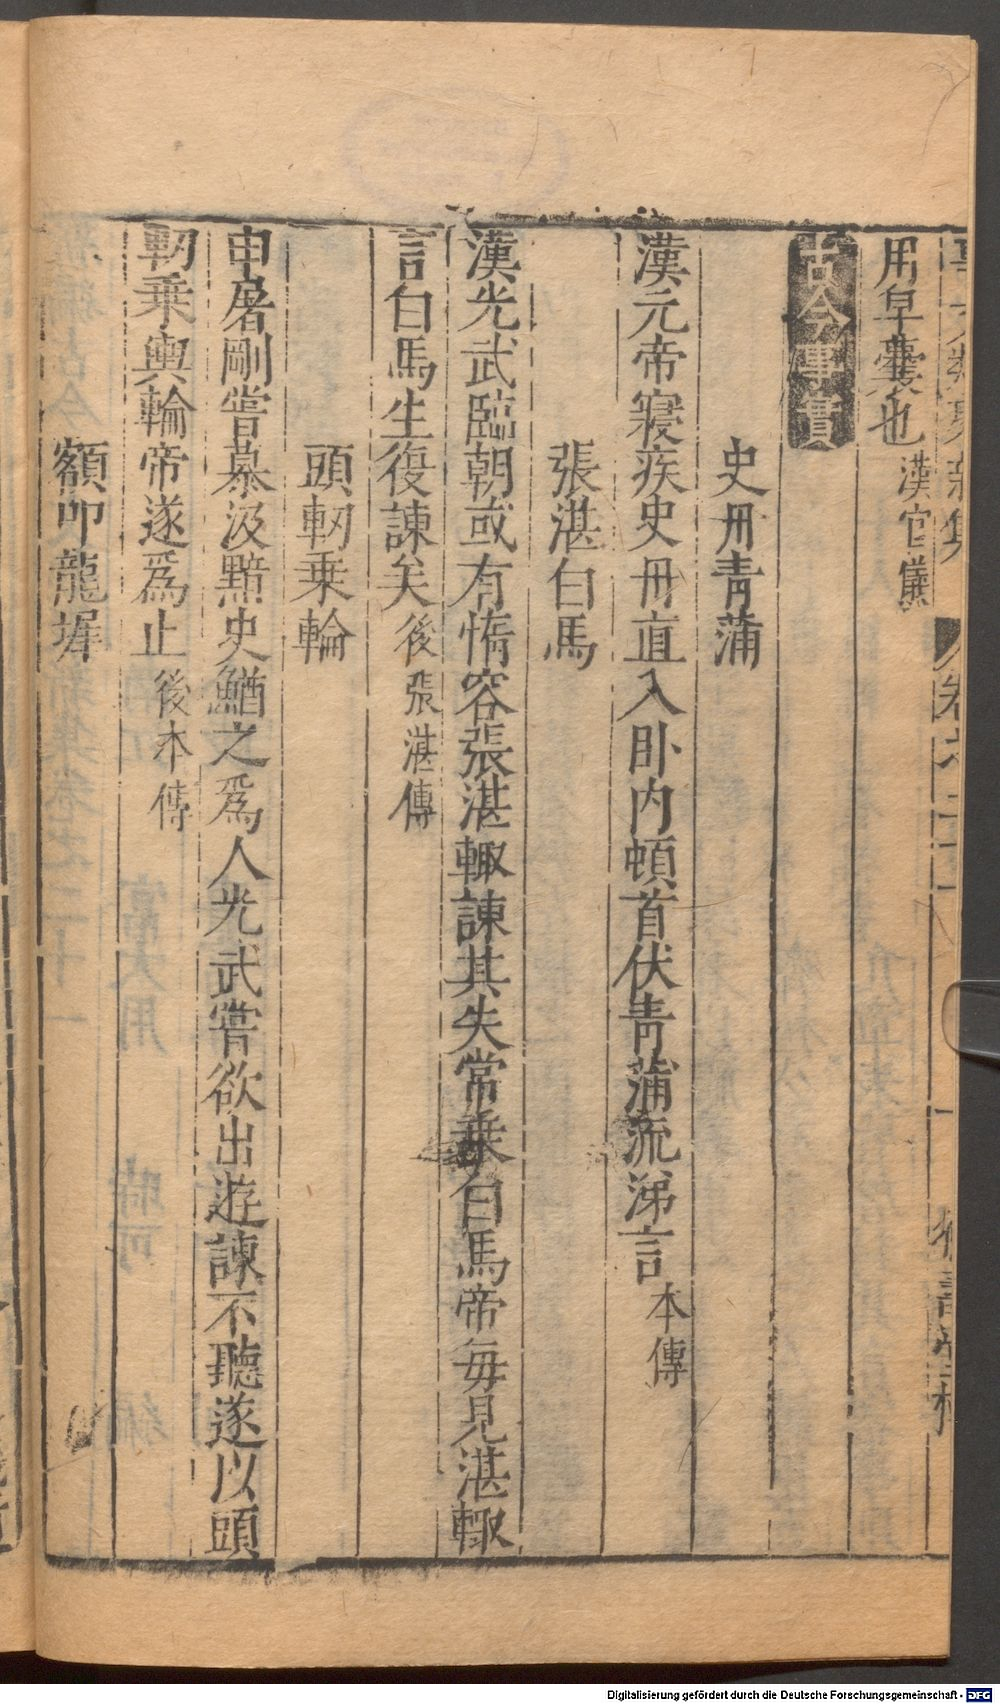 用皁囊也 漢官儀
古今事實
史丹青蒲
漢元帝寢疾史丹直入卧内頓首伏青蒲流涕言 本傳
張湛白馬
漢光武臨朝或有惰容張湛輙諫其失常乗白馬帝每見湛輙
言白馬生復諫矣 後張湛傳
頭軔乗輪
申屠剛嘗慕汲黯史鰌之爲人光武嘗欲出遊諫不聽遂以頭
軔乗輿輪帝遂爲止 後本傳
額叩龍墀
Digitalisierung gefördert durch die Deutsche Forschungsgemeinschaft - DFG